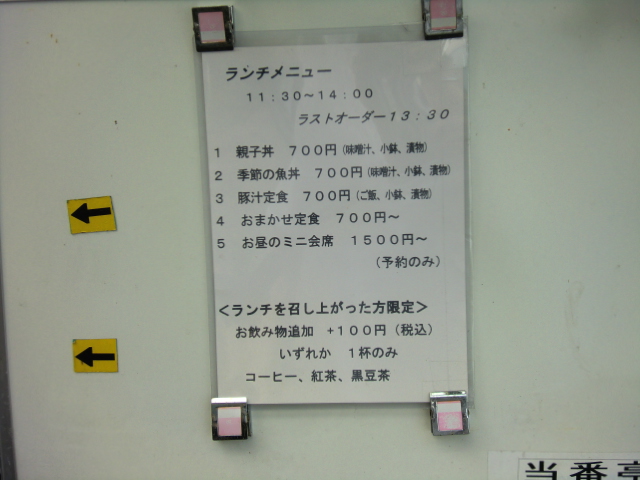 ランチメニュー
11:30～14:00
ラストオーダー13:30
1 親子丼 700円(味噌汁、小鉢、漬物)
2 季節の魚丼 700円(味噌汁、小鉢、漬物)
3 豚汁定食 700円(ご飯、小鉢、漬物)
4 おまかせ定食 700円～
5 お昼のミニ会席 1500円～
(予約のみ)
＜ランチを召し上がった方限定＞
お飲み物追加 +100円(税込)
いずれか 1杯のみ
コーヒー、紅茶、黒豆茶
当番亭